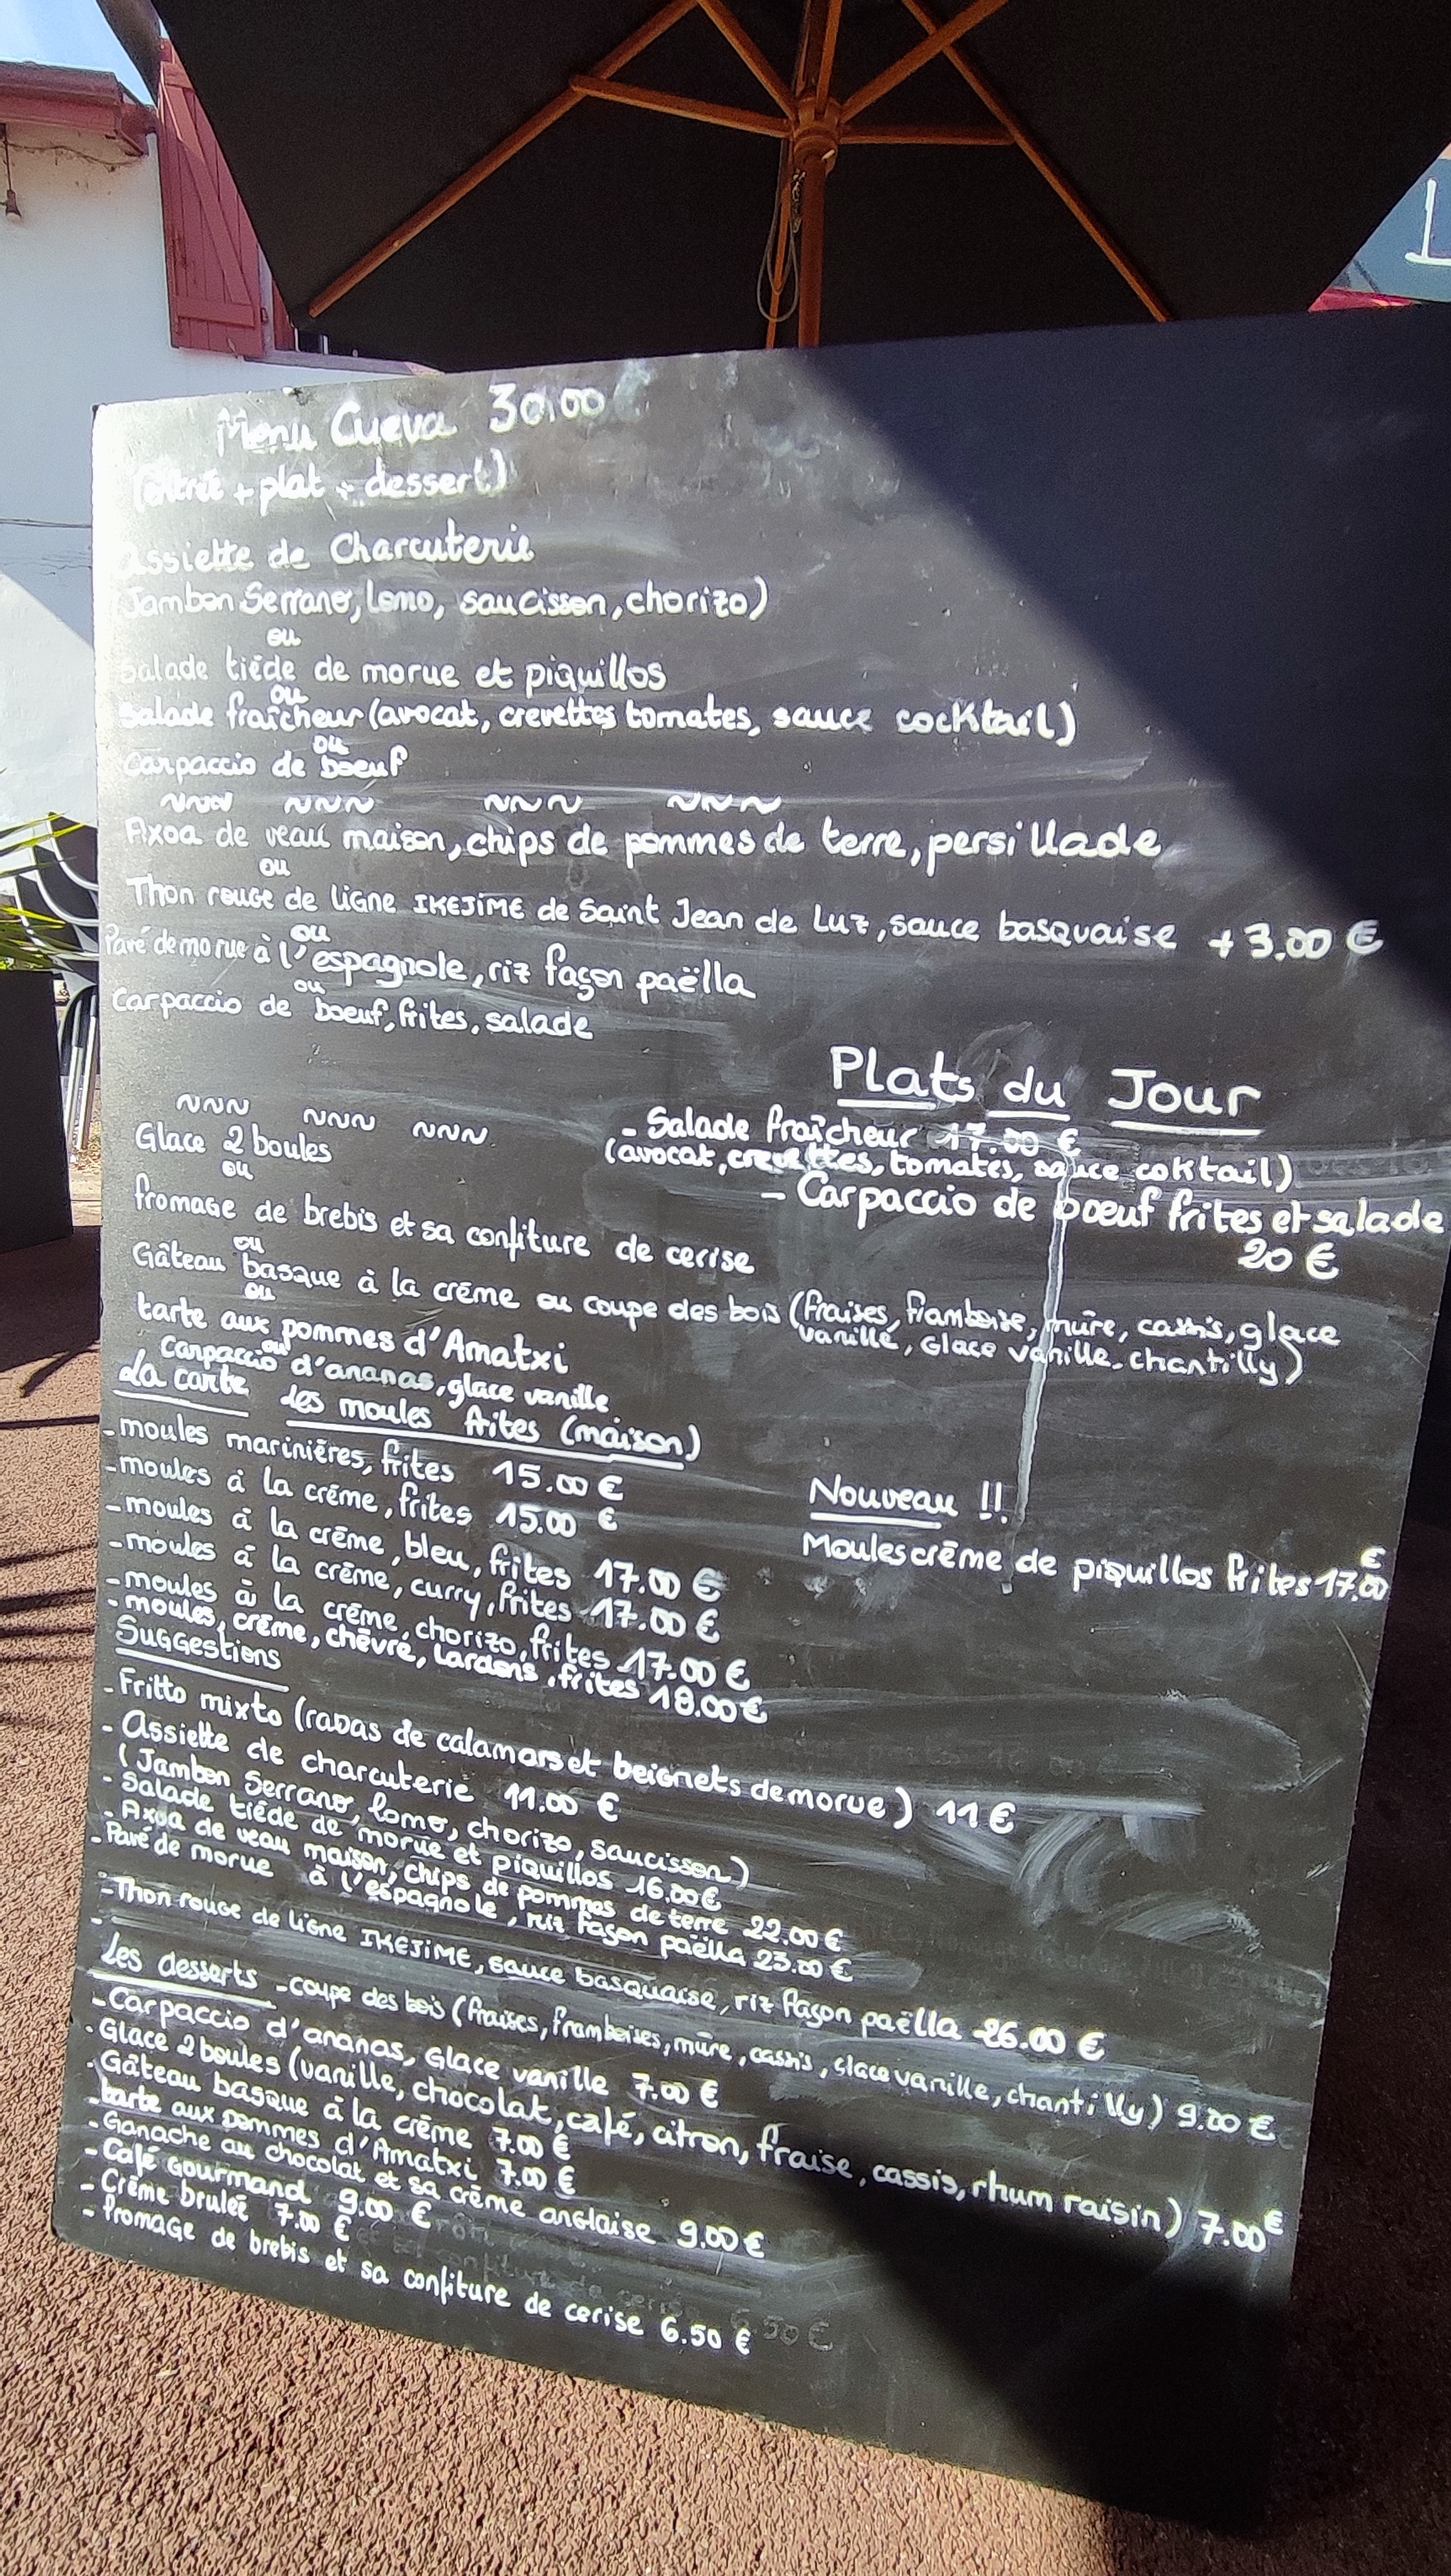 Menu Cueva 30.00
(entrée + plat + dessert)
Assiette de Charcuterie
Jambon Serrano, lomo, saucisson, chorizo)
ou
Salade tiède de morue et piquillos
ou
Salade fraîcheur (avocat, crevettes tomates, sauce cocktail)
ou
Carpaccio de boeuf
~~~ ~~~ ~~~ ~~~
Axoa de veau maison, chips de pommes de terre, persillade
ou
Thon rouge de ligne IKEJIME de Saint Jean de Luz, sauce basquaise + 3.00 €
ou
Pavé de morue à l'espagnole, riz façon paëlla
ou
Carpaccio de boeuf, frites, salade
Plats du Jour
- Salade fraîcheur 17.00 €
(avocat, crevettes, tomates, sauce coktail)
- Carpaccio de boeuf frites et salade
20 €
~~~ ~~~ ~~~
Glace 2 boules
ou
fromage de brebis et sa confiture de cerise
ou
Gâteau basque à la crème ou coupe des bois (fraises, framboise, mûre, cassis, glace
vanille, Glace vanille, chantilly)
ou
tarte aux pommes d'Amatxi
ou
Carpaccio d'ananas, glace vanille
La carte les moules frites (maison)
- moules marinières, frites 15.00 €
- moules à la crème, frites 15.00 €
- moules à la crème, bleu, frites 17.00 €
- moules à la crème, curry, frites 17.00 €
- moules à la crème, chorizo, frites 17.00 €
- moules, crème, chèvre, lardons, frites 18.00 €
Nouveau !!
Moules crème de piquillos frites 17.00 €
Suggestions
- Fritto mixto (rabas de calamars et beignets de morue) 11 €
- Assiette de charcuterie 11.00 €
(Jambon Serrano, lomo, chorizo, saucisson)
- Salade tiède de morue et piquillos 16.00 €
- Axoa de veau maison, chips de pommes de terre 22.00 €
- Pavé de morue à l'espagnole, riz façon paëlla 23.00 €
- Thon rouge de ligne IKEJIME, sauce basquaise, riz façon paëlla 26.00 €
-
Les desserts - coupe des bois (fraises, framboises, mûre, cassis, glace vanille, chantilly) 9.00 €
- Carpaccio d'ananas, Glace vanille 7.00 €
- Glace 2 boules (vanille, chocolat, café, citron, fraise, cassis, rhum raisin) 7.00 €
- Gâteau basque à la crème 7.00 €
- tarte aux pommes d'Amatxi 7.00 €
- Ganache au chocolat et sa crème anglaise 9.00 €
- Café Gourmand 9.00 €
- Crème brulée 7.00 €
- fromage de brebis et sa confiture de cerise 6.50 €